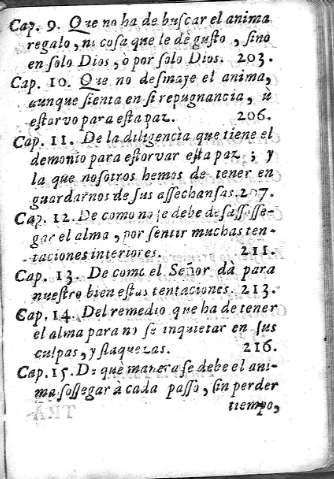 Cap. 9. Que no ha de buscar el anima
regalo, ni cosa que le dè gusto, sino
en solo Dios, ò por solo Dios. 203.
Cap. 10. Que no desmaye el anima,
aunque sienta en si repugnancia, ù
estorvo para esta paz. 206.
Cap. 11. De la diligencia que tiene el
demonio para estorvar esta paz; y
la que nosotros hemos de tener en
guardarnos de sus assechansas. 207.
Cap. 12. De como no se debe desassosse-
gar el alma, por sentir muchas ten-
taciones interiores. 211.
Cap. 13. De como el Señor dà para
nuestro bien estas tentaciones. 213.
Cap. 14. Del remedio que ha de tener
el alma para no se inquietar en sus
culpas, y flaquezas. 216.
Cap. 15. De què manera se debe el ani-
ma sossegar à cada passo, sin perder
tiempo,